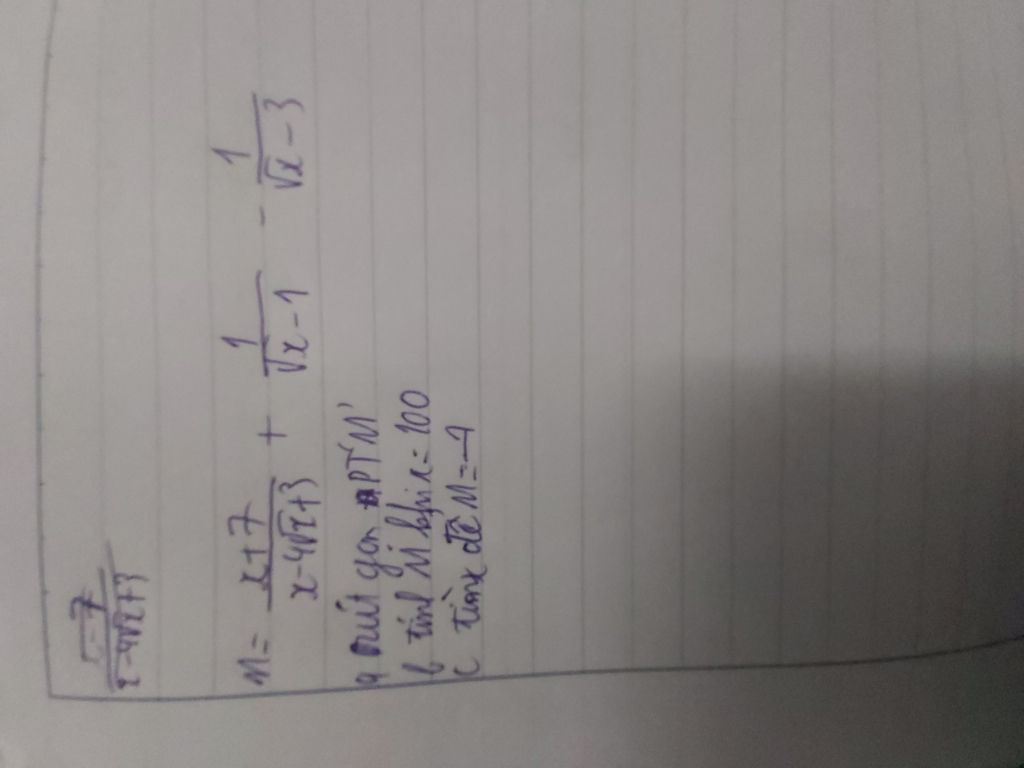 x - 4√x + 3
M = x+7 / x - 4√x + 3 + 1 / √x - 1 - 1 / √x - 3
a rút gọn PT M
b tính M x = 100
c tìm x để M =